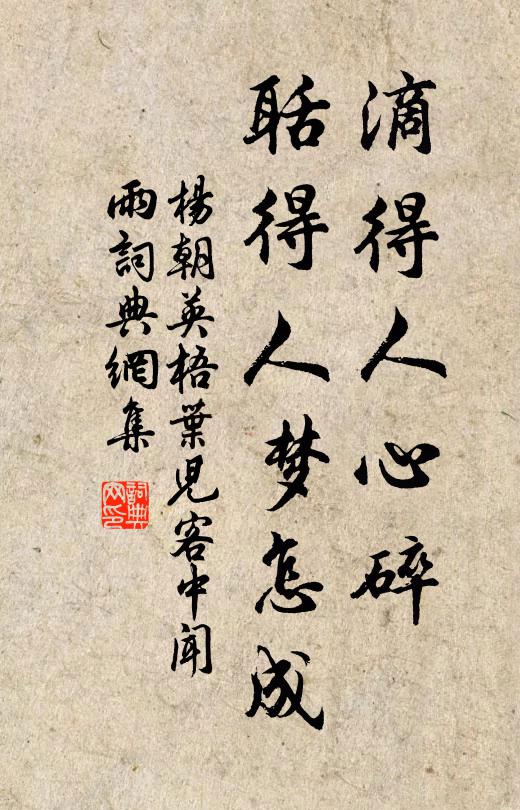 滴得人心碎
聒得人梦怎成
楊朝英梧葉児客中聞
雨詞典網集
詞典
网印